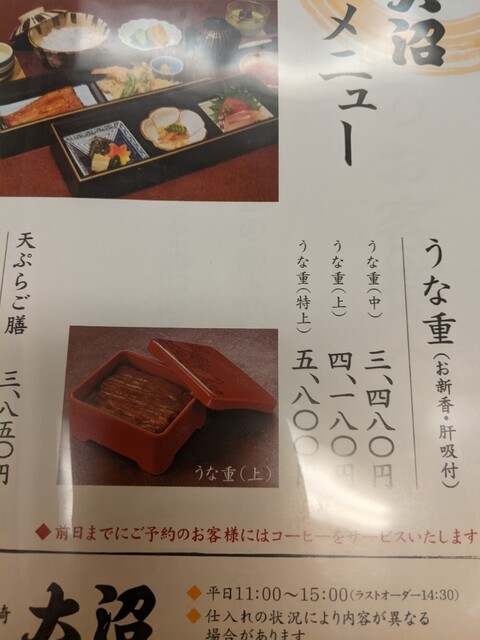 大沼
メニュー
うな重(お新香・肝吸付)
うな重(中) 三、四八〇円
うな重(上) 四、一八〇円
うな重(特上) 五、八〇〇円
天ぷらご膳 三、八五〇円
うな重(上)
◆前日までにご予約のお客様にはコーヒーをサービスいたします
大沼
◆平日11:00〜15:00(ラストオーダー14:30)
◆仕入れの状況により内容が異なる
場合があります